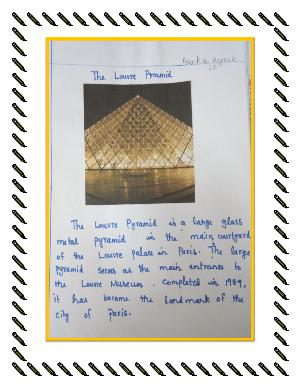 The Louvre Pyramid
The Louvre Pyramid is a large glass
metal pyramid in the main courtyard
of the Louvre palace in Paris. The large
pyramid serves as the main entrance to
the Louvre Museum. Completed in 1989,
it has become the landmark of the
city of Paris.